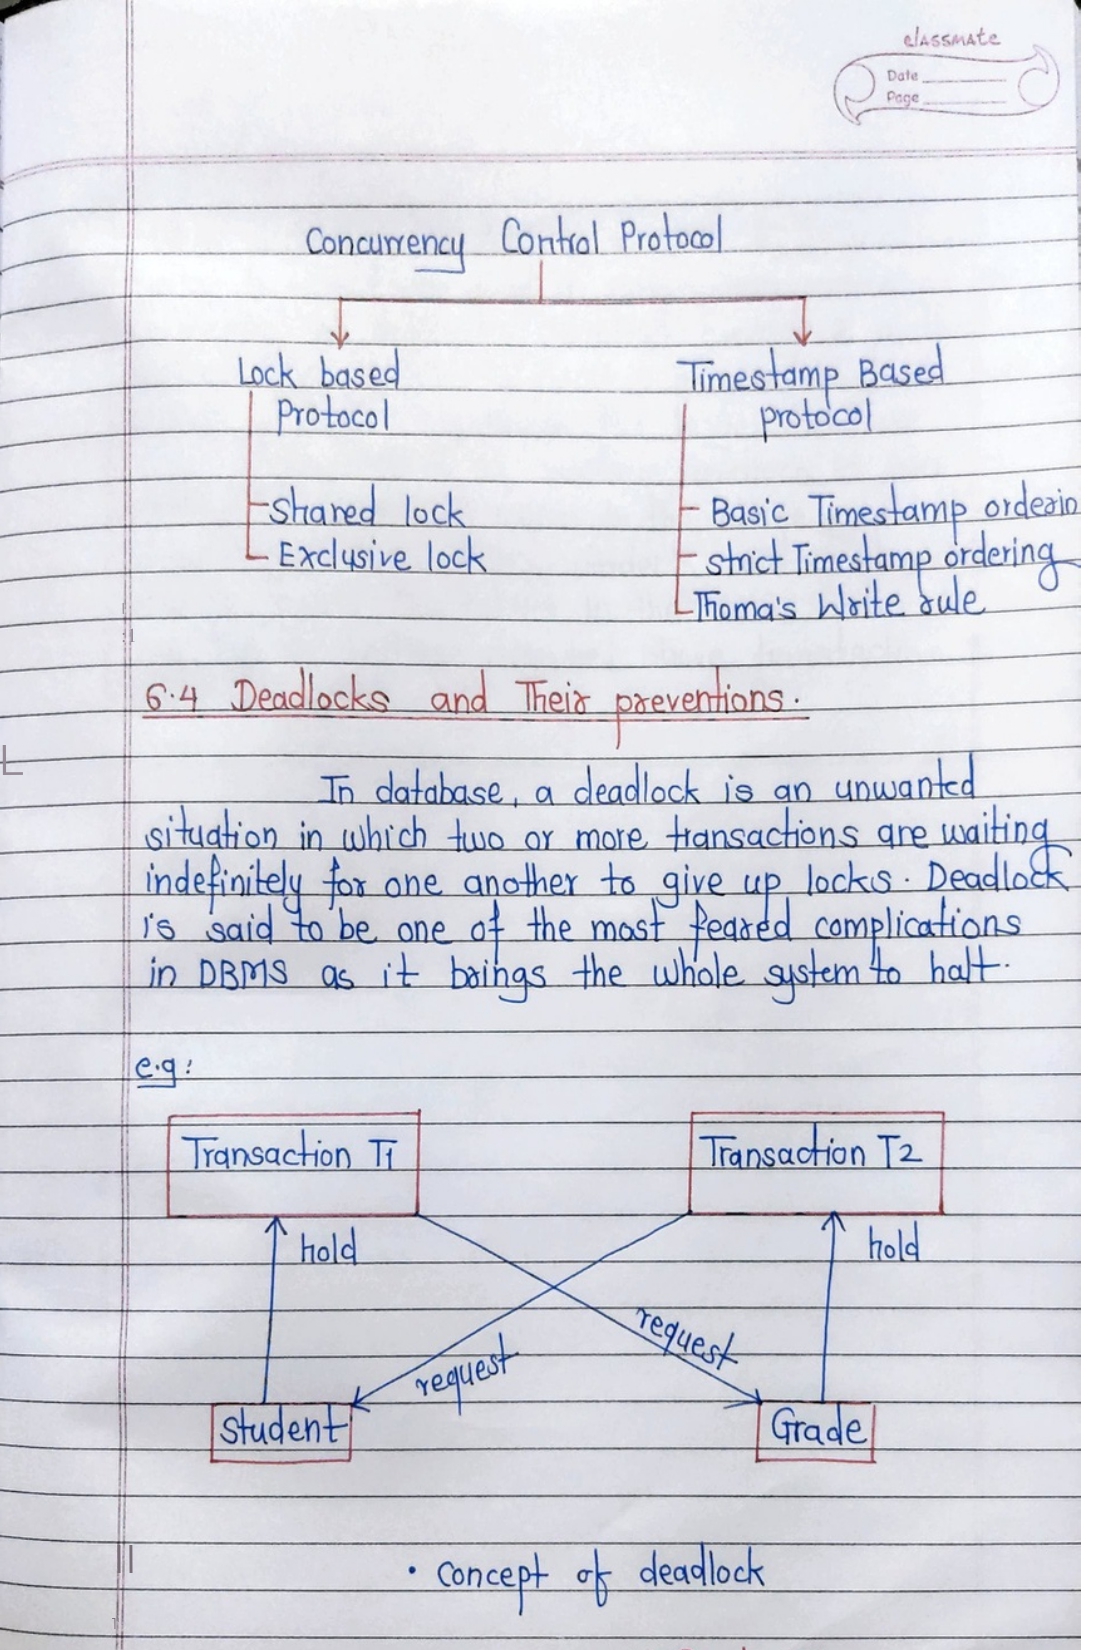 classmate
Date
Page
Concurrency Control Protocol
Lock based
Protocol
Timestamp Based
protocol
Shared lock
Exclusive lock
Basic Timestamp orderin
strict Timestamp ordering
Thoma's Write rule
6.4 Deadlocks and Their preventions.
In database, a deadlock is an unwanted
situation in which two or more transactions are waiting
indefinitely for one another to give up locks. Deadlock
is said to be one of the most feared complications
in DBMS as it brings the whole system to halt.
e.g:
Transaction T1
Transaction T2
hold
hold
request
request
Student
Grade
• concept of deadlock